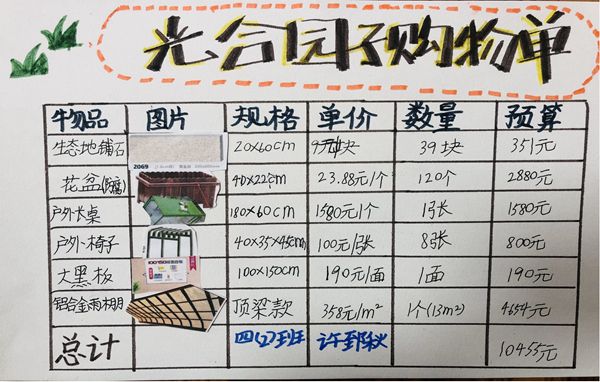 光合园子购物单
物品 图片 规格 单价 数量 预算
生态地铺石 2069 20×60cm 9元/块 39块 351元
花盆(防腐) 40×22cm 23.88元/个 120个 2880元
户外长桌 180×60cm 1580元/个 1张 1580元
户外椅子 40×35×45cm 100元/张 8张 800元
大黑板 100*150 100×150cm 190元/面 1面 190元
铝合金雨棚 顶梁款 358元/m² 1个(13m²) 4654元
总计 四(2)班 许郅秋 10455元